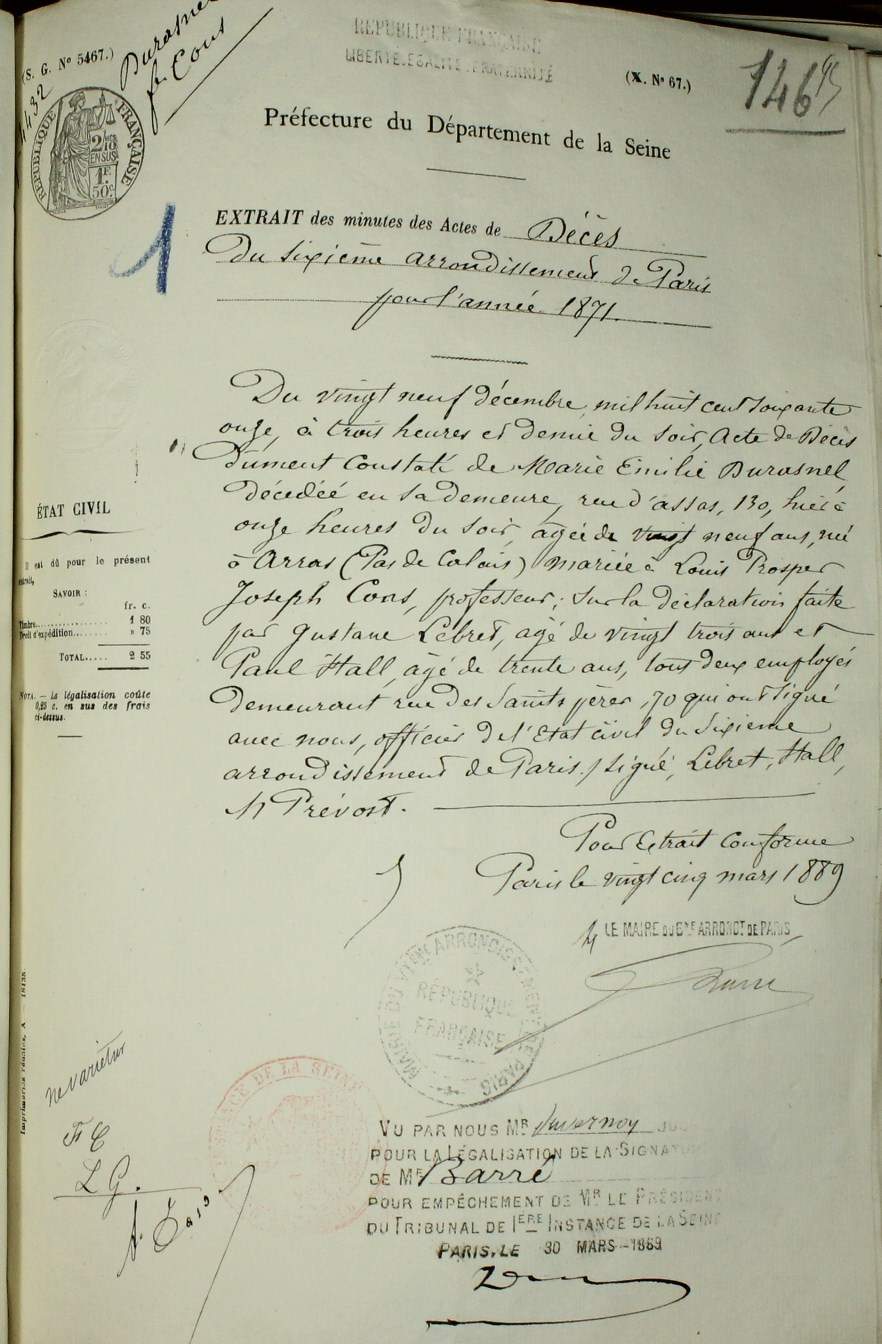 (S. G. Nº 5467.)
4432
Durasnel
f. Cons
RÉPUBLIQUE FRANÇAISE
LIBERTÉ-EGALITÉ-FRATERNITÉ
(X. Nº 67.)
146
Préfecture du Département de la Seine
RÉPUBLIQUE FRANÇAISE
2/10
EN SUS
1F
50C
1
EXTRAIT des minutes des Actes de Décès
Du Sixième arrondissement de Paris
pour l'année 1871
Du vingt neuf décembre, mil huit cent soixante
onze, à trois heures et demie du soir, Acte de Décès
Dûment constaté de Marie Emilie Durasnel
décédée en sa demeure, rue d'assas, 130, hier à
onze heures du soir, agée de vingt neuf ans, né
à Arras (Pas de Calais) mariée à Louis Prosper
Joseph Cons, professeur; Sur la déclaration faite
par Gustave Lebret, agé de vingt trois ans et
Paul Hall, âgé de trente ans, tous deux employés
demeurant rue des Saints pères, 70 qui ont signé
avec nous, officier de l'Etat civil du Sixieme
arrondissement de Paris./Signé, Lebret, Hall,
Prévost.
ÉTAT CIVIL
Il est dû pour le présent
extrait,
SAVOIR :
fr. c.
Timbre............ 1 80
Droit d'expédition...... » 75
TOTAL..... 2 55
NOTA. — La légalisation coûte
0,25 c. en sus des frais
ci-dessus.
Pour Extrait conforme
Paris le vingt cinq mars 1889
LE MAIRE DU 6ME ARRONDT DE PARIS,
MAIRIE DU VIME ARRONDISSEMENT DE PARIS
RÉPUBLIQUE
FRANÇAISE
Imprimeries réunies, A — 18138.
ne varietur
L G.
INSTANCE DE LA SEINE
VU PAR NOUS MR Duvernoy
POUR LA LÉGALISATION DE LA SIGNATURE
DE MR Barré
POUR EMPÊCHEMENT DE MR LE PRÉSIDENT
DU TRIBUNAL DE IÈRE INSTANCE DE LA SEINE
PARIS, LE 30 MARS 1889